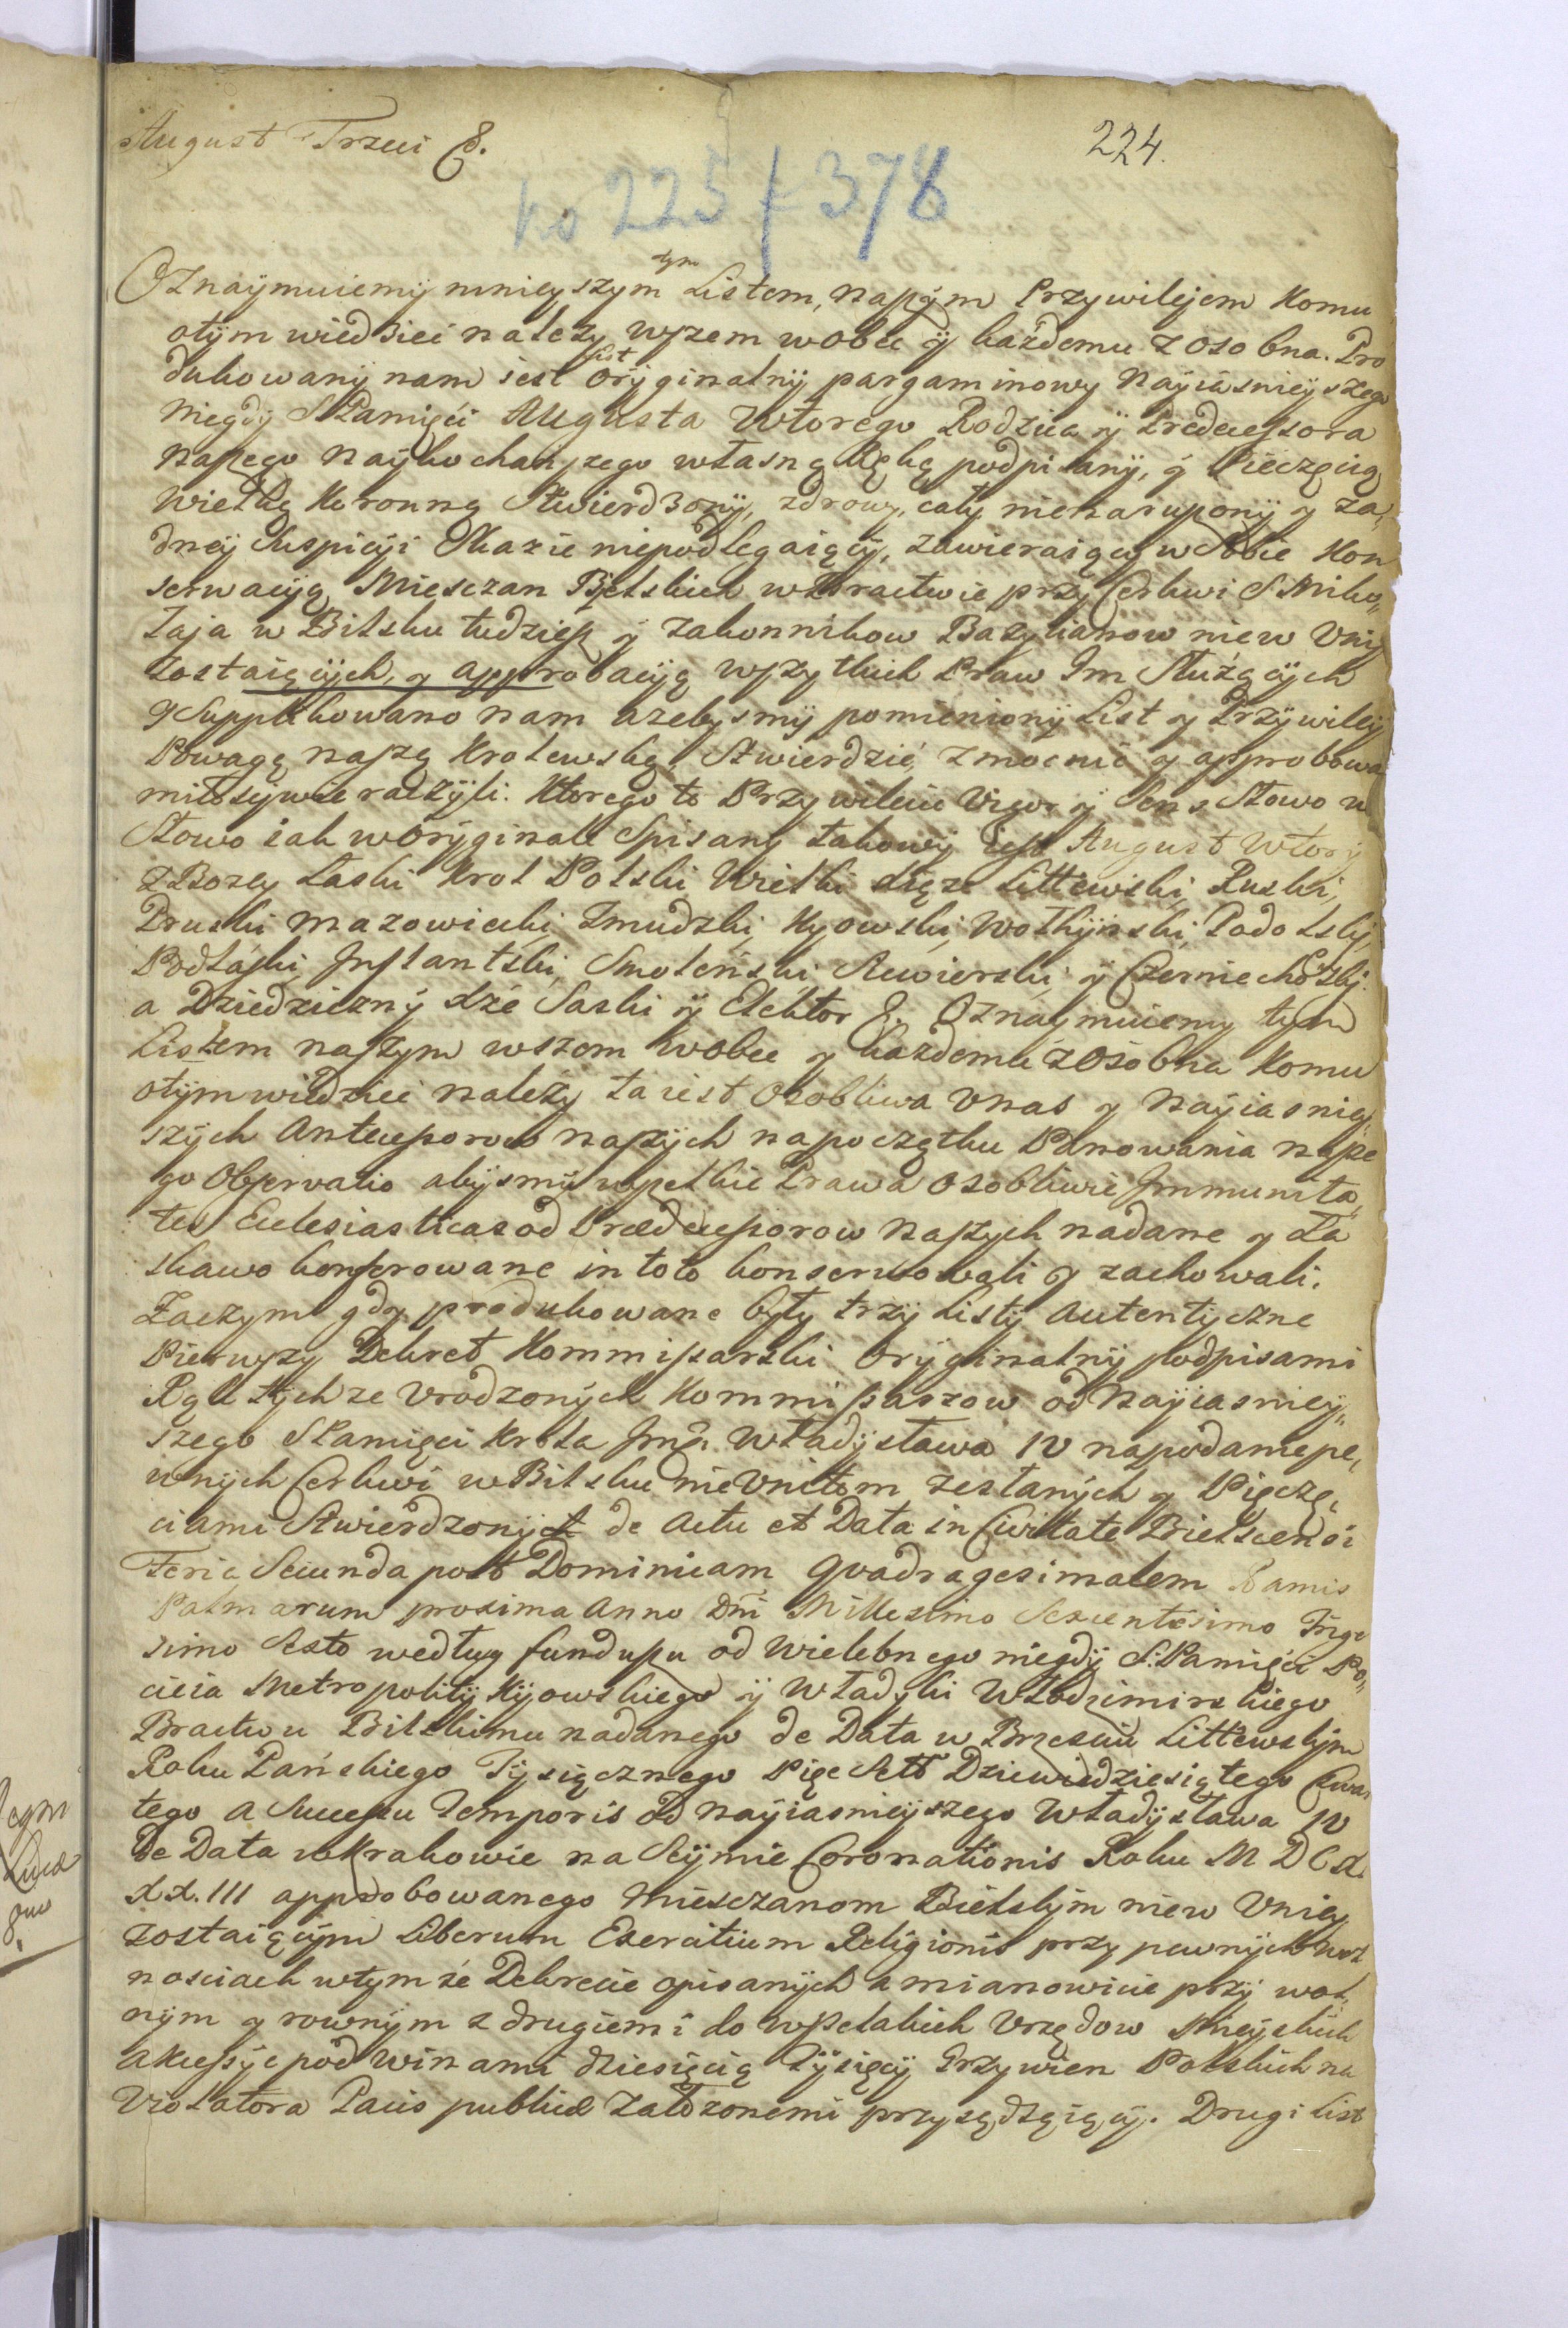 August Trzeci &.
224.
No 225 / 378
tym
Oznaÿmuiemÿ ninieyszym Listem, naszÿm Przywilejem Komu
otÿm wiedzieć należy wszem wobec ÿ każdemu zosobna. Pro
List
dukowanÿ nam iest Orÿginalnÿ pargaminowy Naÿiasnieÿszego
Niegdÿ S Pamięći Augusta Wtorego Rodzica ÿ Predecessora
Naszego Naÿkochanszego własną Ręką podpisanÿ, ÿ Pieczęcią
Wielką Koronną Stwierdzonÿ, zdrowy, całÿ nienaruszonÿ y Ża,
dneÿ Suspicÿi Skazie niepodlegaiącÿ, zawieraiącÿ w Sobie Kon
serwacÿą Miesczan Bielskich wBractwie przÿ Cerkwi S Miko,,
łaja w Bilsku tudziesz ÿ Zakonnikow Bazylianow niew Vnÿ
zostaiącÿch, y approbacÿą wszytkich Praw Im Służącÿch
y Supplikowano nam ażebysmÿ pomienionÿ List y Przÿwileÿ
Powagą naszą Krolewską Stwierdzić, zmocnić y approbowa
miłosÿwie raczÿli. Ktorego to Przywileiu Vigor ÿ Sens Słowo w
Słowo iak wOrÿginale Spisanÿ takowÿ iest August Wtorÿ
z Bozey Łaski Krol Polski Wielki Xiąze Littewski, Ruski,
Pruski Mazowiecki, Zmudzki, Kyowski, Wołhÿnski, Podolskj,
Podláski, Inflantski, Smoleński, Siewierski, ÿ Czerniechowskj.
a Dziedzicznÿ Xże Saski ÿ Elektor &. Oznaÿmuiemy tym
Listem naszym wszem wobec y każdemu zOsobna Komu
otÿm wiedziec należy ta iest Osobliwa Vnas y Naÿiasniey,
szÿch Antecessorow naszÿch napoczątku Panowania nasze
go Observatio abÿsmÿ wszelkie Prawa Osobliwie Immunita,
tes Ecclesiasticas od Prædecessorow naszÿch nadane y Ła
skawo konferowane in toto konserwowali y zachowali.
Zaczym gdy produkowane bÿłÿ trzÿ Listÿ Autentÿczne
Pierwszy Dekret Kommissarski Orÿginalnÿ podpisami
Rąk tÿchże Vrodzonÿch Kommissarzow od Naÿiasnieÿ,,
szego S Pamięci Krola Jmći Władÿsława IV napodanie pe,
wnÿch Cerkwi wBilsku nie Vnitom zesłanÿch y Pieczę,
ciami Stwierdzonÿ de Actu et Data in Civitate Bielscensi
Feria Secunda post Dominicam Qvadragesimalem Ramis
Palmarum proxima Anno Dni Millesimo Sexcentesimo Trige
simo Sexto według funduszu od Wielebnego niegdÿ S: Pamięci Po,,
cieia Metropolitÿ Kijowskiego ÿ Władyki Włodzimirskiego
Bractwu Bilskiemu nadanego de Data w Brzesciu Littewskjm
Roku Pańskiego Tÿsiącznego Pięc Seth Dziewiedziesiątego Czwar
tego a Successu Temporis od Naÿiasnieÿszego Władÿsława IV
de Data wKrakowie na Seÿmie Coronationis Roku M D C X.
X X. III approbowanego Miesczanom Bielskjm niew Vniey
zostaiącÿm Liberum Exercitium Religionis przy pewnÿch wol
nosciach wtym że Dekrecie opisanÿch a mianowicie przÿ wol,
nÿm y rownÿm z drugiemi do wszelakich Vrzędow Mieÿskich
Akcessÿe pod winami dziesięcią Tÿsięcÿ Grzywien Polskich na
Violatora Pacis publicæ założonemi przysądzaiącÿ. Drugi List